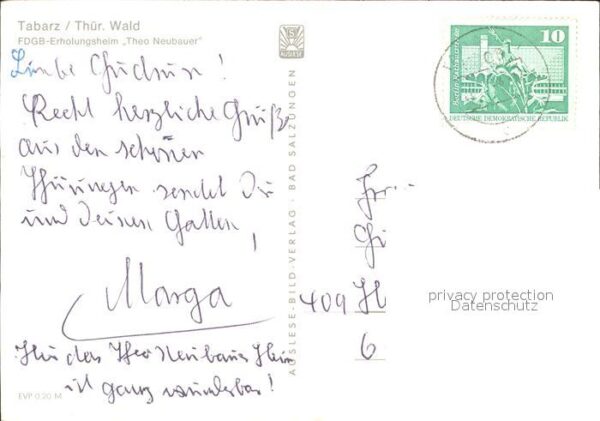 Tabarz / Thür. Wald
FDGB-Erholungsheim „Theo Neubauer"
Liebe Gudrun!
Recht herzliche Grüße
aus dem schönen
Thüringen sendet Dir
und Deinem Gatten
!
Marga
das Theo Neubauer Heim
ist ganz wunderbar!
EVP 0.20 M
AUSLESE-BILD-VERLAG · BAD SALZUNGEN
10
Berlin Rathausstraße
DEUTSCHE DEMOKRATISCHE REPUBLIK
Gi
409
6
privacy protection
Datenschutz